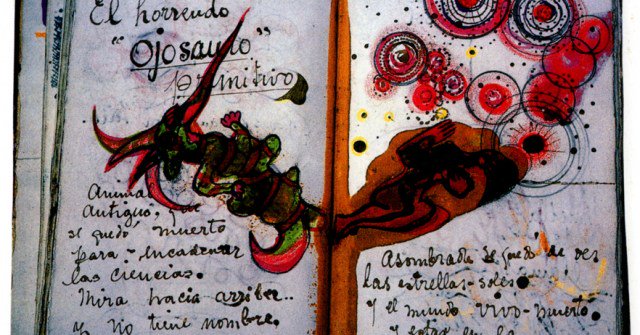 El horrendo
"Ojosauro"
primitivo
Animal
Antiguo, que
se quedó muerto
para encadenar
las ciencias.
Mira hacia arriba..
y No tiene nombre.
Asombrada se quedó de ver
las estrellas-soles
y el mundo vivo-muerto
y estar en la